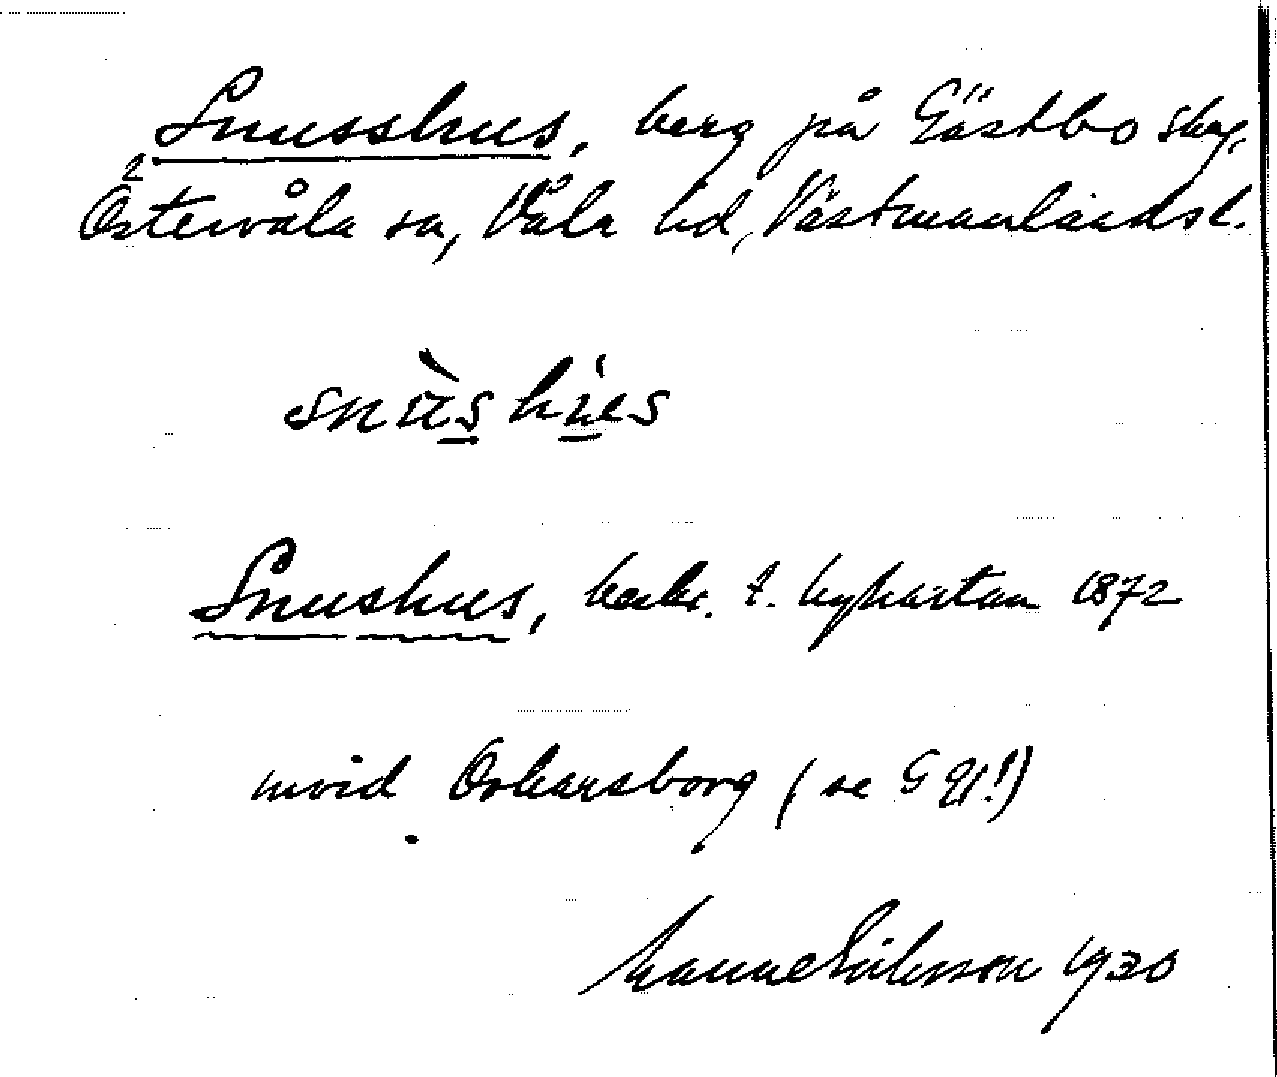 Snusshus, berg på Gästbo skog,
Östervåla sn, Våla hd, Västmanlands l.
snùshús
Snushus, beskr. t. hgkartan 1872
nvid Oskarsborg (se G
Manne Eriksson 1930